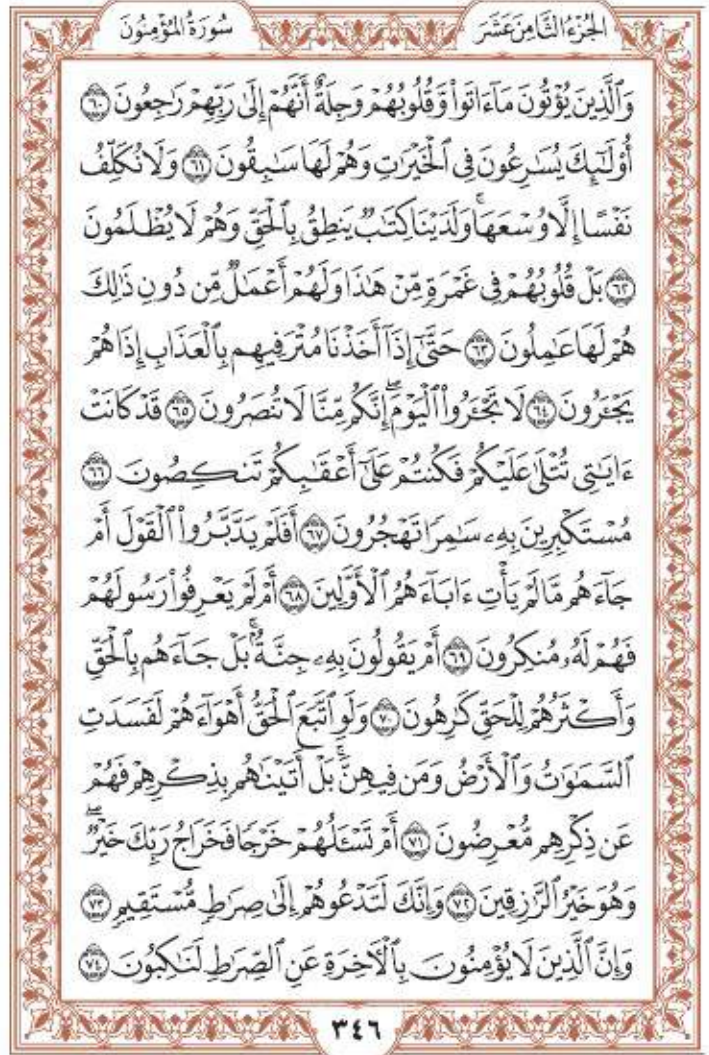 الجُزْءُ الثَّامِنَ عَشَرَ سُورَةُ المُؤْمِنُونَ
وَٱلَّذِينَ يُؤْتُونَ مَآ ءَاتَوا۟ وَّقُلُوبُهُمْ وَجِلَةٌ أَنَّهُمْ إِلَىٰ رَبِّهِمْ رَٰجِعُونَ ٦٠
أُو۟لَٰٓئِكَ يُسَٰرِعُونَ فِى ٱلْخَيْرَٰتِ وَهُمْ لَهَا سَٰبِقُونَ ٦١ وَلَا نُكَلِّفُ
نَفْسًا إِلَّا وُسْعَهَا ۚ وَلَدَيْنَا كِتَٰبٌ يَنطِقُ بِٱلْحَقِّ وَهُمْ لَا يُظْلَمُونَ
٦٢ بَلْ قُلُوبُهُمْ فِى غَمْرَةٍ مِّنْ هَٰذَا وَلَهُمْ أَعْمَٰلٌ مِّن دُونِ ذَٰلِكَ
هُمْ لَهَا عَٰمِلُونَ ٦٣ حَتَّىٰٓ إِذَآ أَخَذْنَا مُتْرَفِيهِم بِٱلْعَذَابِ إِذَا هُمْ
يَجْـَٔرُونَ ٦٤ لَا تَجْـَٔرُوا۟ ٱلْيَوْمَ ۖ إِنَّكُم مِّنَّا لَا تُنصَرُونَ ٦٥ قَدْ كَانَتْ
ءَايَٰتِى تُتْلَىٰ عَلَيْكُمْ فَكُنتُمْ عَلَىٰٓ أَعْقَٰبِكُمْ تَنكِصُونَ ٦٦
مُسْتَكْبِرِينَ بِهِۦ سَٰمِرًا تَهْجُرُونَ ٦٧ أَفَلَمْ يَدَّبَّرُوا۟ ٱلْقَوْلَ أَمْ
جَآءَهُم مَّا لَمْ يَأْتِ ءَابَآءَهُمُ ٱلْأَوَّلِينَ ٦٨ أَمْ لَمْ يَعْرِفُوا۟ رَسُولَهُمْ
فَهُمْ لَهُۥ مُنكِرُونَ ٦٩ أَمْ يَقُولُونَ بِهِۦ جِنَّةٌۢ ۚ بَلْ جَآءَهُم بِٱلْحَقِّ
وَأَكْثَرُهُمْ لِلْحَقِّ كَٰرِهُونَ ٧٠ وَلَوِ ٱتَّبَعَ ٱلْحَقُّ أَهْوَآءَهُمْ لَفَسَدَتِ
ٱلسَّمَٰوَٰتُ وَٱلْأَرْضُ وَمَن فِيهِنَّ ۚ بَلْ أَتَيْنَٰهُم بِذِكْرِهِمْ فَهُمْ
عَن ذِكْرِهِم مُّعْرِضُونَ ٧١ أَمْ تَسْـَٔلُهُمْ خَرْجًا فَخَرَاجُ رَبِّكَ خَيْرٌ ۖ
وَهُوَ خَيْرُ ٱلرَّٰزِقِينَ ٧٢ وَإِنَّكَ لَتَدْعُوهُمْ إِلَىٰ صِرَٰطٍ مُّسْتَقِيمٍ ٧٣
وَإِنَّ ٱلَّذِينَ لَا يُؤْمِنُونَ بِٱلْـَٔاخِرَةِ عَنِ ٱلصِّرَٰطِ لَنَٰكِبُونَ ٧٤
٣٤٦